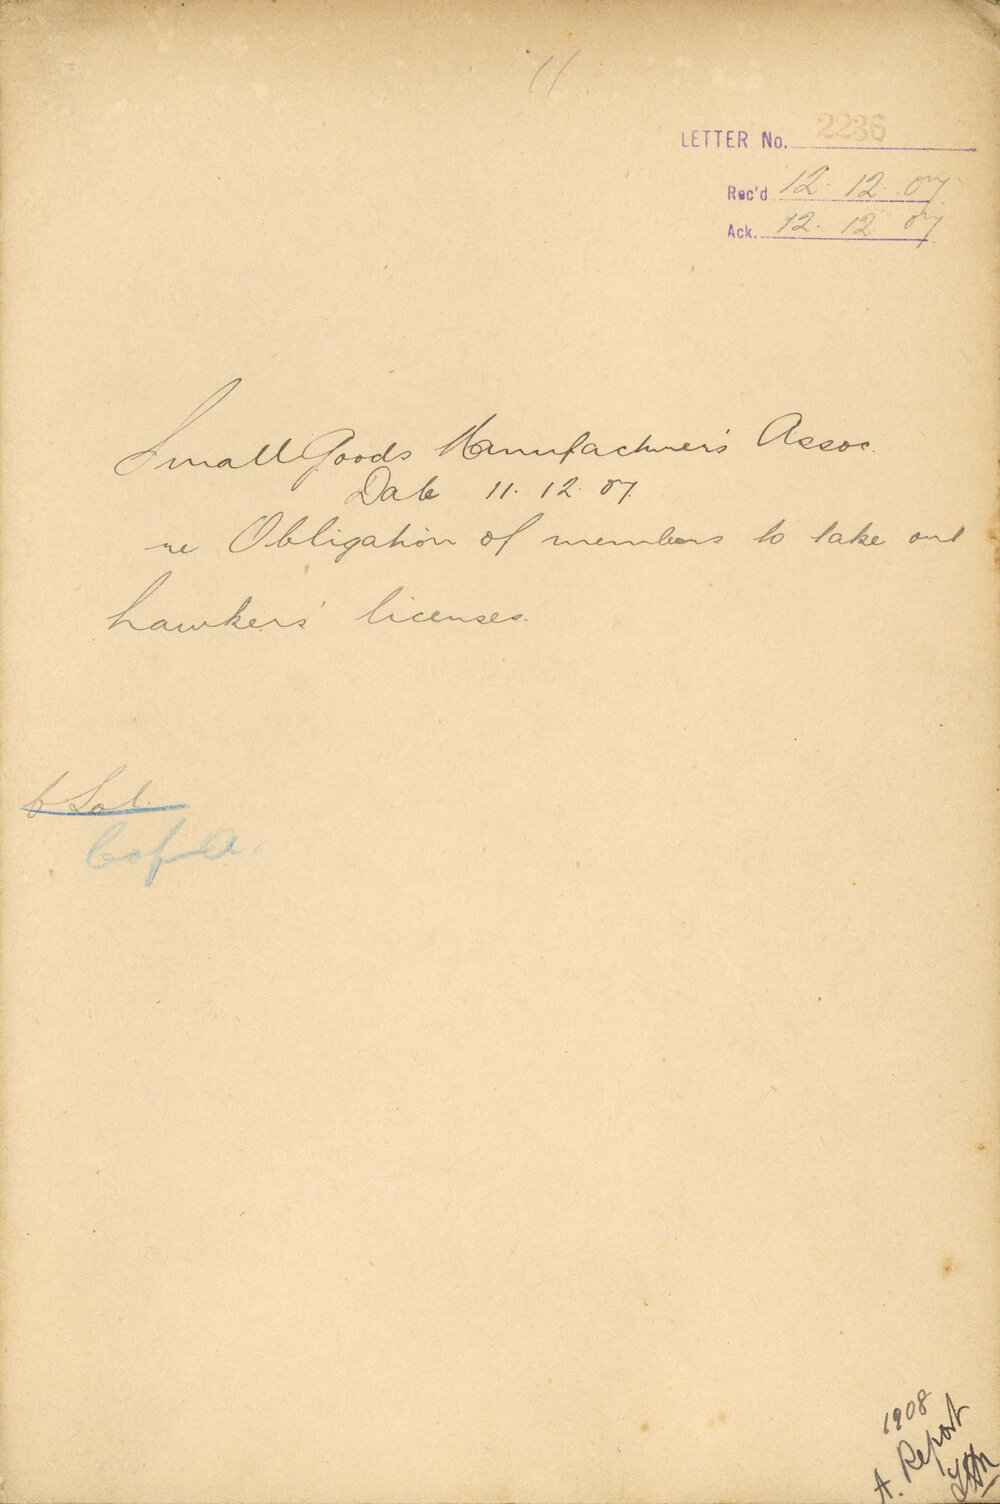 11
LETTER No. 2236
Rec'd 12. 12. 07
Ack. 12. 12 07
Small Goods Manufacturers Assoc.
Date 11. 12. 07.
re Obligation of members to take out
hawkers' licenses.
C Sol.
C of A.
1908
A. Report